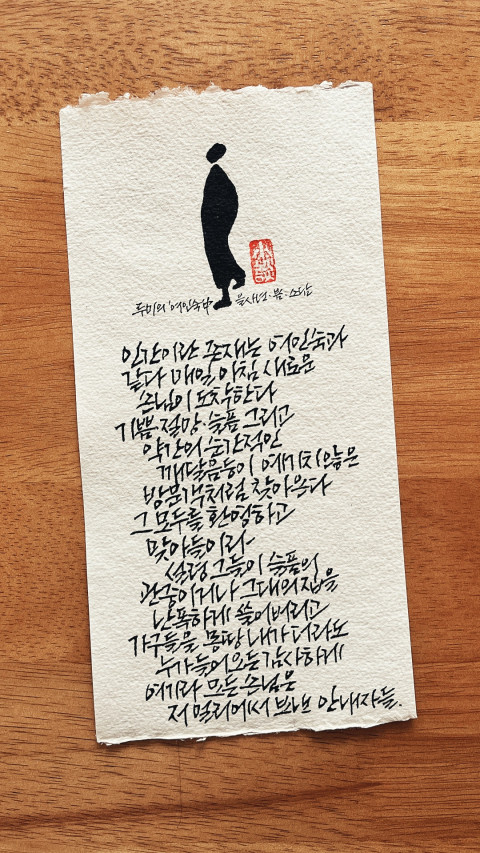 루미의 '여인숙'中
글씨다.봄.소담
인간이란 존재는 여인숙과
같다 매일 아침 새로운
손님이 도착한다
기쁨·절망·슬픔 그리고
약간의 순간적인
깨달음등이 예기치않은
방문객처럼 찾아온다
그 모두를 환영하고
맞아들이라
설령 그들이 슬픔의
군중이거나 그대의 집을
난폭하게 쓸어버리고
가구들을 몽땅 내가더라도
누가들어오든 감사하게
여기라 모든 손님은
저 멀리에서 보낸 안내자들.